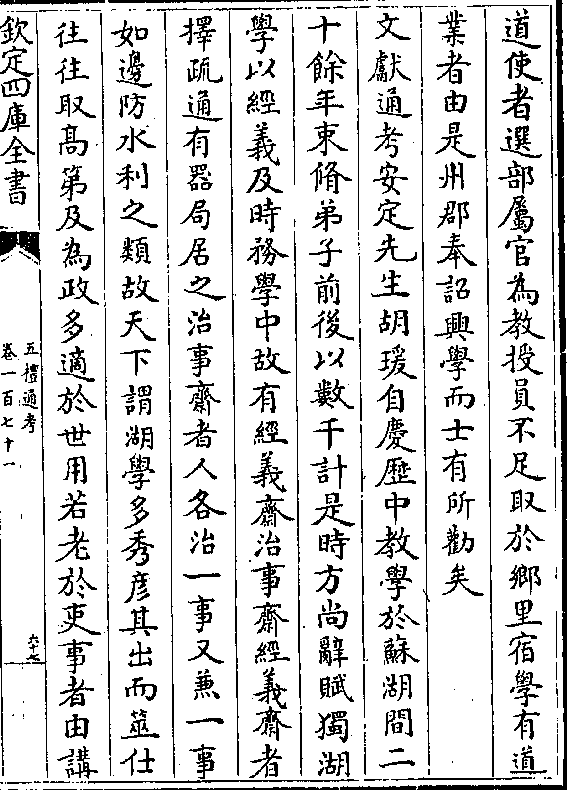 道使者選部屬官為教授員不足取於鄉里宿學有道
業者由是州郡奉詔興學而士有所勸矣
文獻通考安定先生胡瑗自慶歴中教學於蘇湖間二
十餘年束脩弟子前後以數千計是時方尚辭賦獨湖
學以經義及時務學中故有經義齋治事齋經義齋者
擇疏通有器局居之治事齋者人各治一事又兼一事
如邊防水利之類故天下謂湖學多秀彦其出而筮仕
往往取高第及為政多適於世用若老於吏事者由講
欽定四庫全書
五禮通考
卷一百七十一
六十七